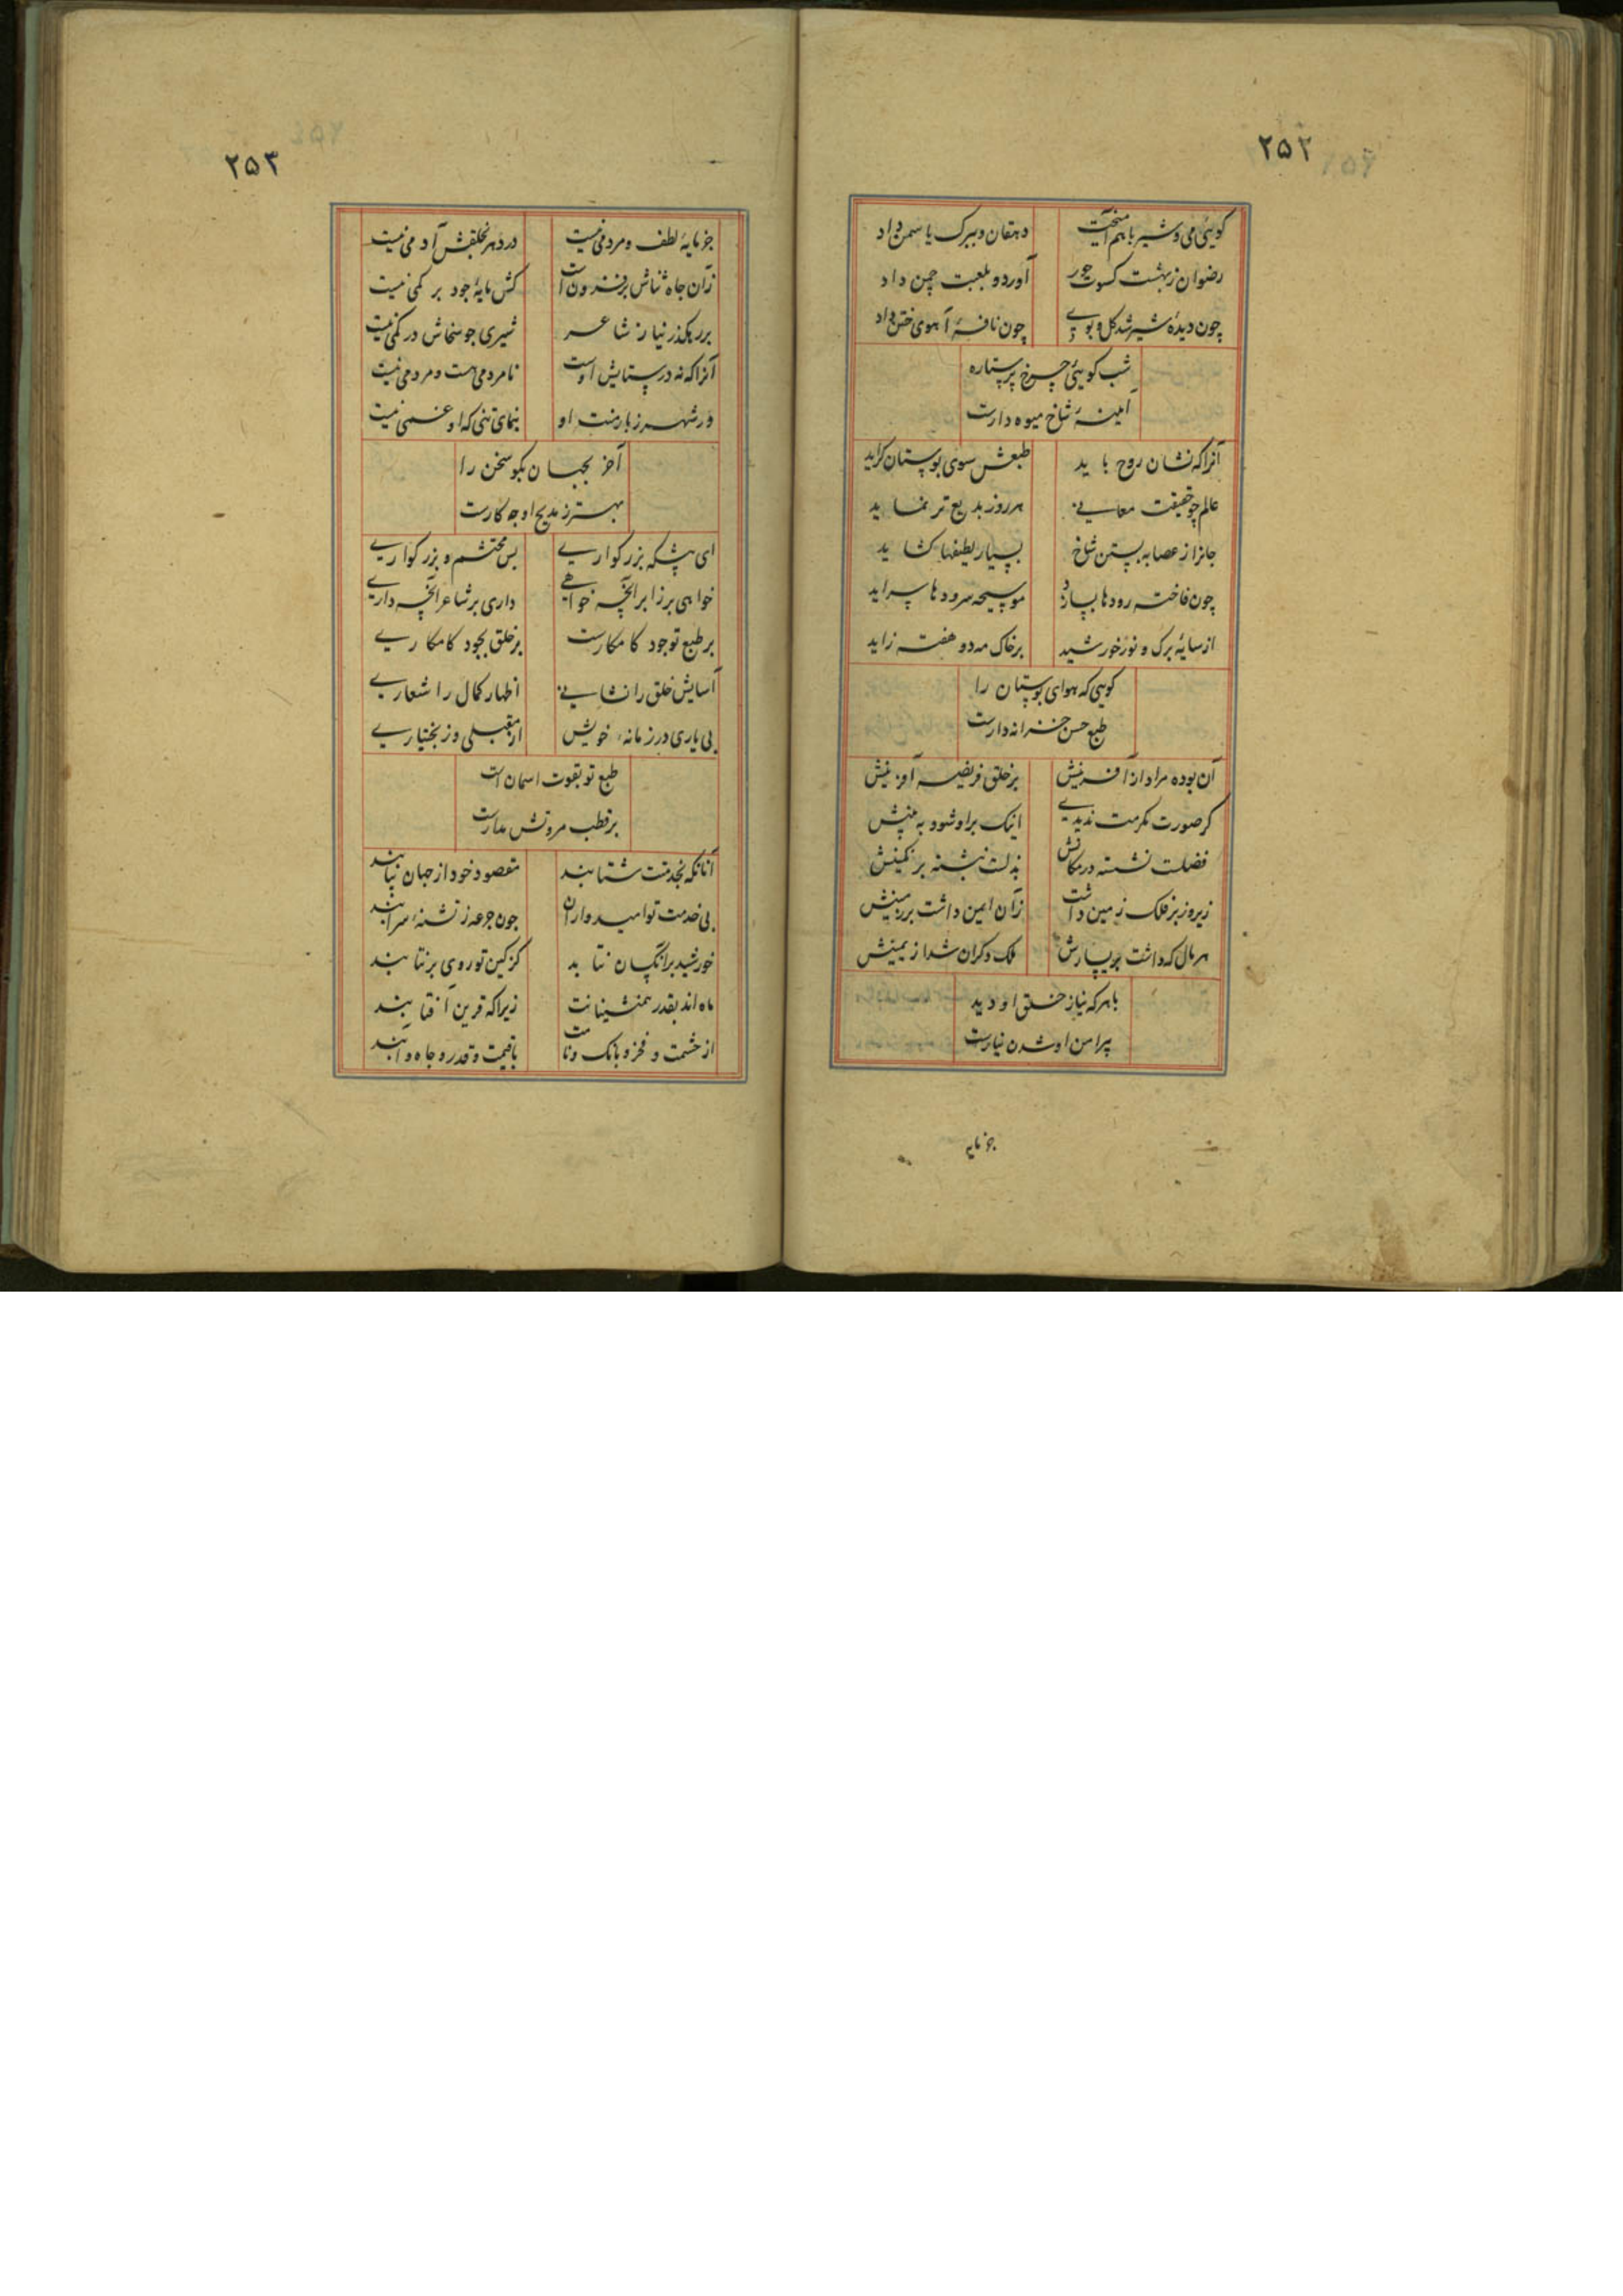 ۲۵۲
کویئی می و شیر با هم آمیخت دهقان و ببرک یاسمن داد
رضوان ز بهشت کسوت حور آورد و بلعبت چمن داد
چون دیدهٔ شیر شد کل و بوی چون نافهٔ آهوی ختن داد
شب کویئی چرخ پرستاره
آمینهٔ شاخ میوه دارست
آنرا که نشان روح باید طبعش سوی بوستان کراید
عالم چو حقیقت معانی هر روز بدیع تر نماید
جانرا ز عصابه بستن شاخ بسیار لطیفها کشاید
چون فاخته رودها بسازد موسیجه سرودها سراید
از سایهٔ برک و نور خورشید بر خاک مه دو هفته زاید
کویی که هوای بوستان را
طبع حسن خزانه دارست
آن بوده مراد از آفرینش بر خلق فریضه آفرینش
کر صورت مکرمت ندیدی اینک براو شود به بینش
فضلت نشسته در مکانش بذلت نبشته بر نکینش
زیر و زبر فلک زمین داشت زان ایمن داشت بر زمینش
هر مال که داشت بر یسارش ملک دکران شد از یمینش
با هر که نیاز خلق او دید
پیرامن او شدن نیارست
جز مایه
۲۵۳
جز مایهٔ لطف و مردمی نیست در دهر بخلقش آدمی نیست
زان جاه ثناش بر فزونست کش مایهٔ جود بر کمی نیست
بر رهکذر نیاز شاعر شیری جو سخاش در کمی نیست
آنرا که نه در ستایش اوست نامردمی است و مردمی نیست
در شهر ز بار منت او بنمای تنی که او خمی نیست
آخر بجهان بکو سخن را
بهتر ز مدیح او چه کارست
ای پیشکه بزرکواری بس محتشم و بزرکواری
خواهی بر زایر آنچه خواهی داری بر شاعر آنچه داری
بر طبع تو جود کامکارست بر خلق بجود کامکاری
آسایش خلق را نشانی اظهار کمال را شعاری
بی یاری در زمانهٔ خویش از مقبلی و ز بختیاری
طبع تو بقوت اسمان است
بر قطب مروتش مدارست
آنانکه بخدمتت شتابند مقصود خود از جهان بیابند
بی خدمت تو امیدواران جون جرعه ز تشنهٔ سرابند
خورشید بر انکسان نتابد کز کین تو روی بر نتابند
ماه اند بقدر همنشینانت زیرا که قرین آفتابند
از حشمت و فخر و بانک و نامت باقیمت و قدر و جاه و آبند